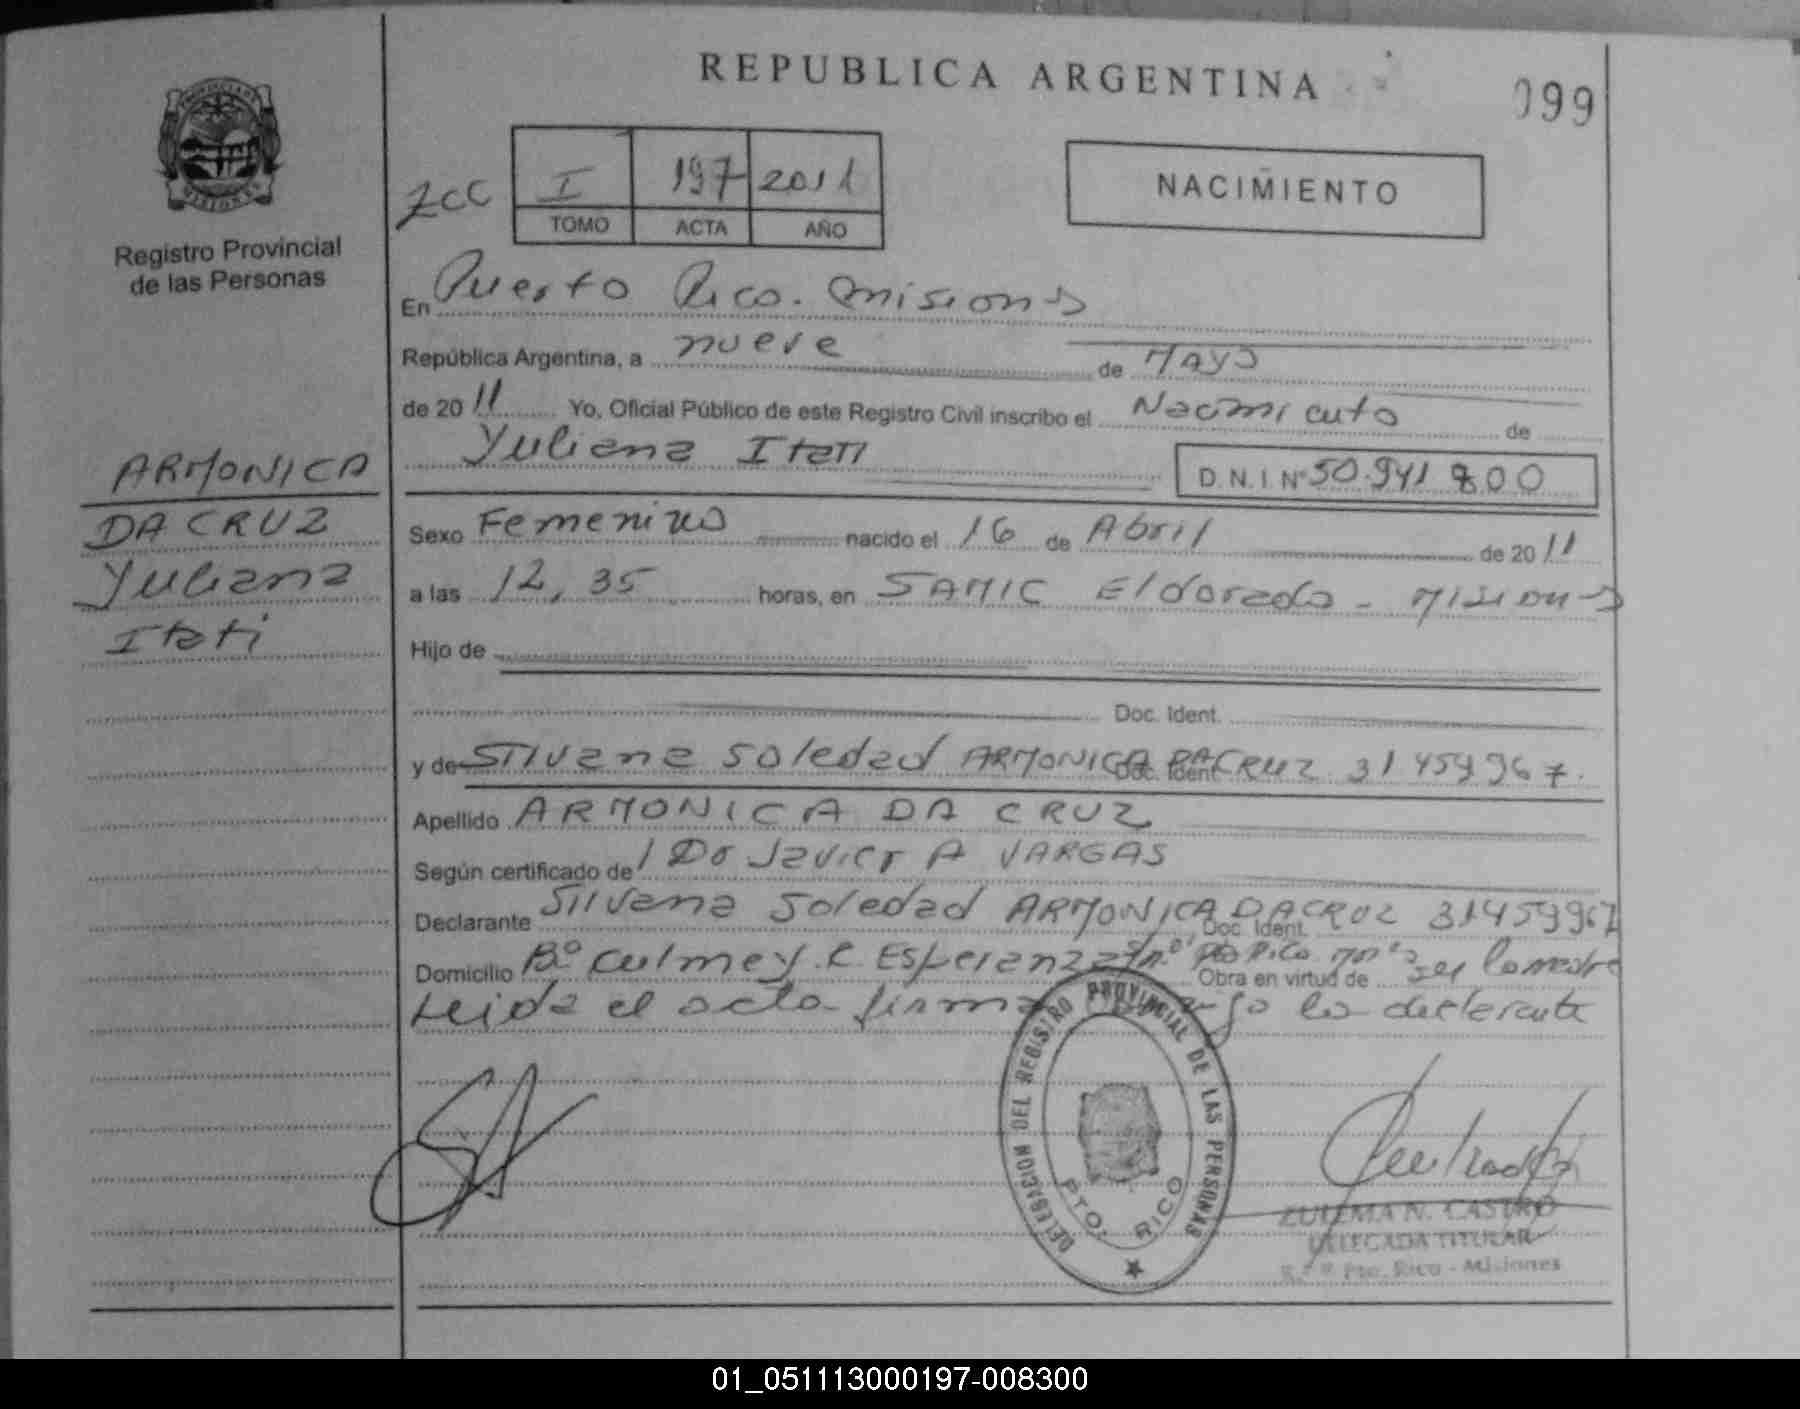 REPUBLICA ARGENTINA
099
PROVINCIA DE
MISIONES
Registro Provincial
de las Personas
I 197 2011
TOMO ACTA AÑO
NACIMIENTO
En Puerto Rico. Misiones
República Argentina, a nueve de Mayo
de 2011 Yo, Oficial Público de este Registro Civil inscribo el Nacimiento de
Yuliana Itati D.N.I Nº 50.941 800
ARMONICA
DA CRUZ
Yuliana
Itati
Sexo Femenino nacido el 16 de Abril de 2011
a las 12,35 horas, en SAMIC Eldorado - Misiones
Hijo de
Doc. Ident.
y de Silvana Soledad ARMONICA DA CRUZ Doc. Ident. 31459967.
Apellido ARMONICA DA CRUZ
Según certificado de Dr Javier A VARGAS
Declarante Silvana Soledad ARMONICA DA CRUZ Doc. Ident. 31459967
Domicilio Bº Culmey C. Esperanza Pto Rico Obra en virtud de ser la madre
Leida el acta firma la declarante
DELEGACION DEL REGISTRO PROVINCIAL DE LAS PERSONAS
PTO. RICO
ZULEMA N. CASTRO
DELEGADA TITULAR
Pto. Rico - Misiones
01_051113000197-008300